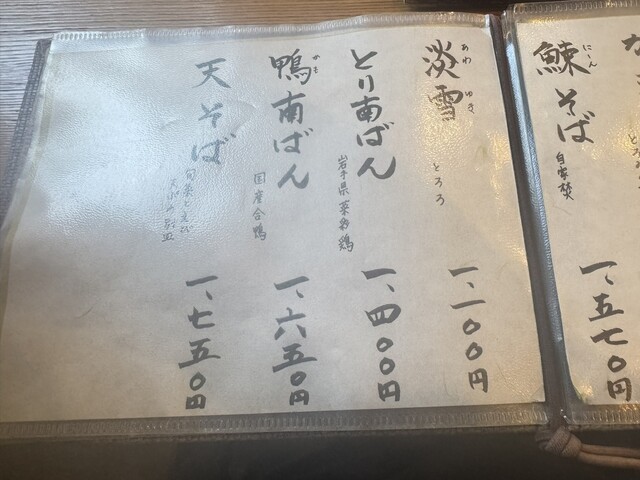 な
とろろ
鰊そば
にしん
自家焚
一、五七〇円
淡雪
あわゆき
とろろ
一、一〇〇円
とり南ばん
岩手県菜彩鶏
一、四〇〇円
鴨南ばん
かも
国産合鴨
一、六五〇円
天そば
旬菜と
天ぷら別皿
一、七五〇円